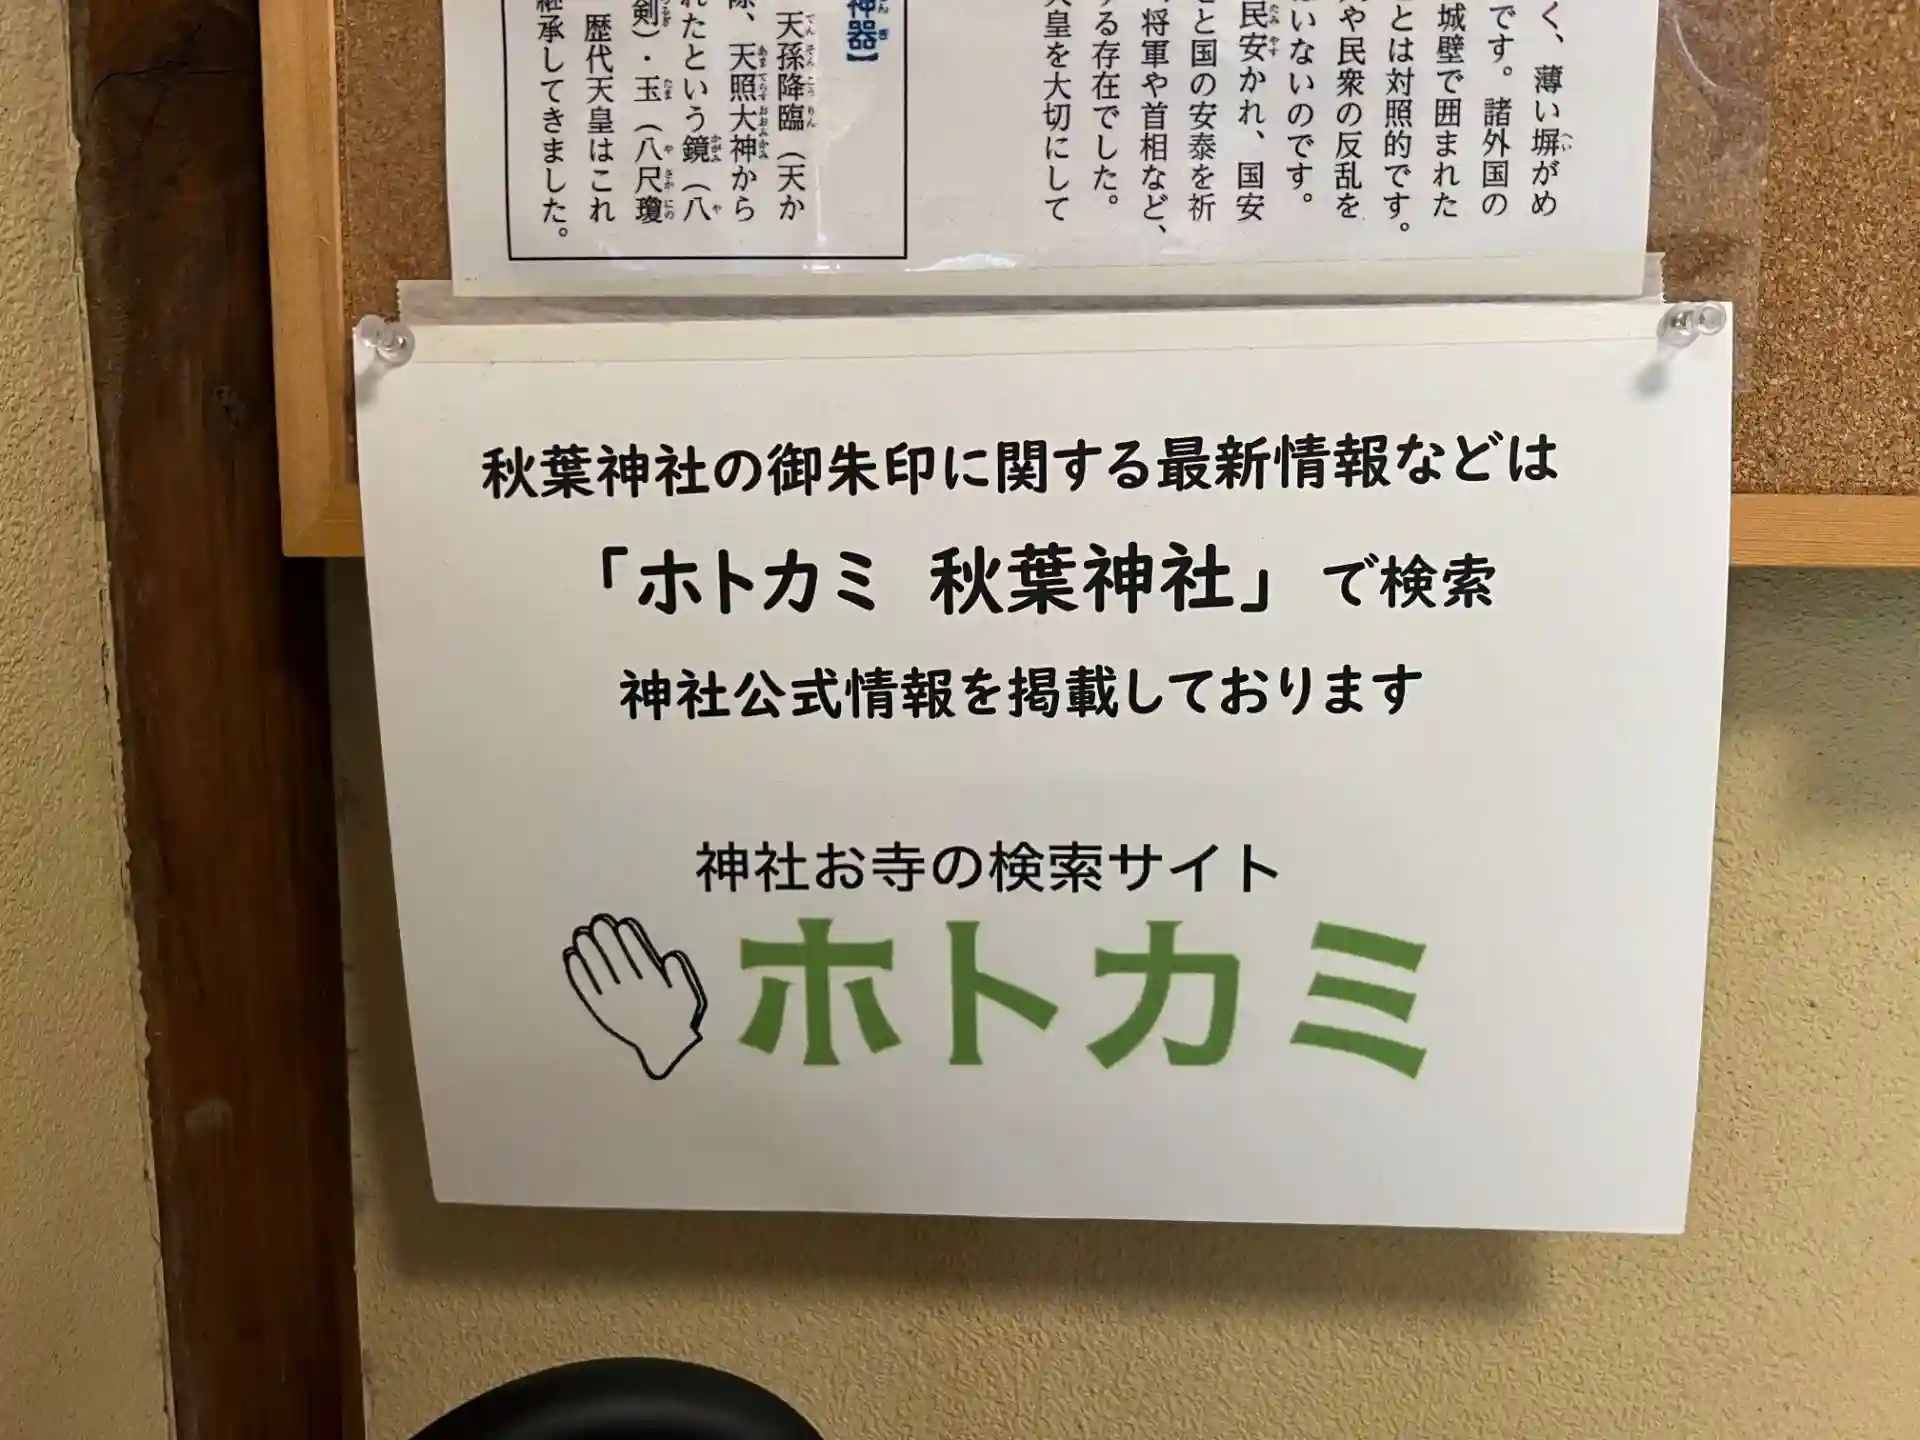 く、薄い塀がめ
です。諸外国の
城壁で囲まれた
とは対照的です。
や民衆の反乱を
いないのです。
民安かれ、国安
と国の安泰を祈
将軍や首相など、
る存在でした。
皇を大切にして
神器】
天孫降臨（天か
、天照大神から
れたという鏡（八
剣）・玉（八尺瓊
歴代天皇はこれ
継承してきました。
秋葉神社の御朱印に関する最新情報などは
「ホトカミ 秋葉神社」で検索
神社公式情報を掲載しております
神社お寺の検索サイト
ホトカミ